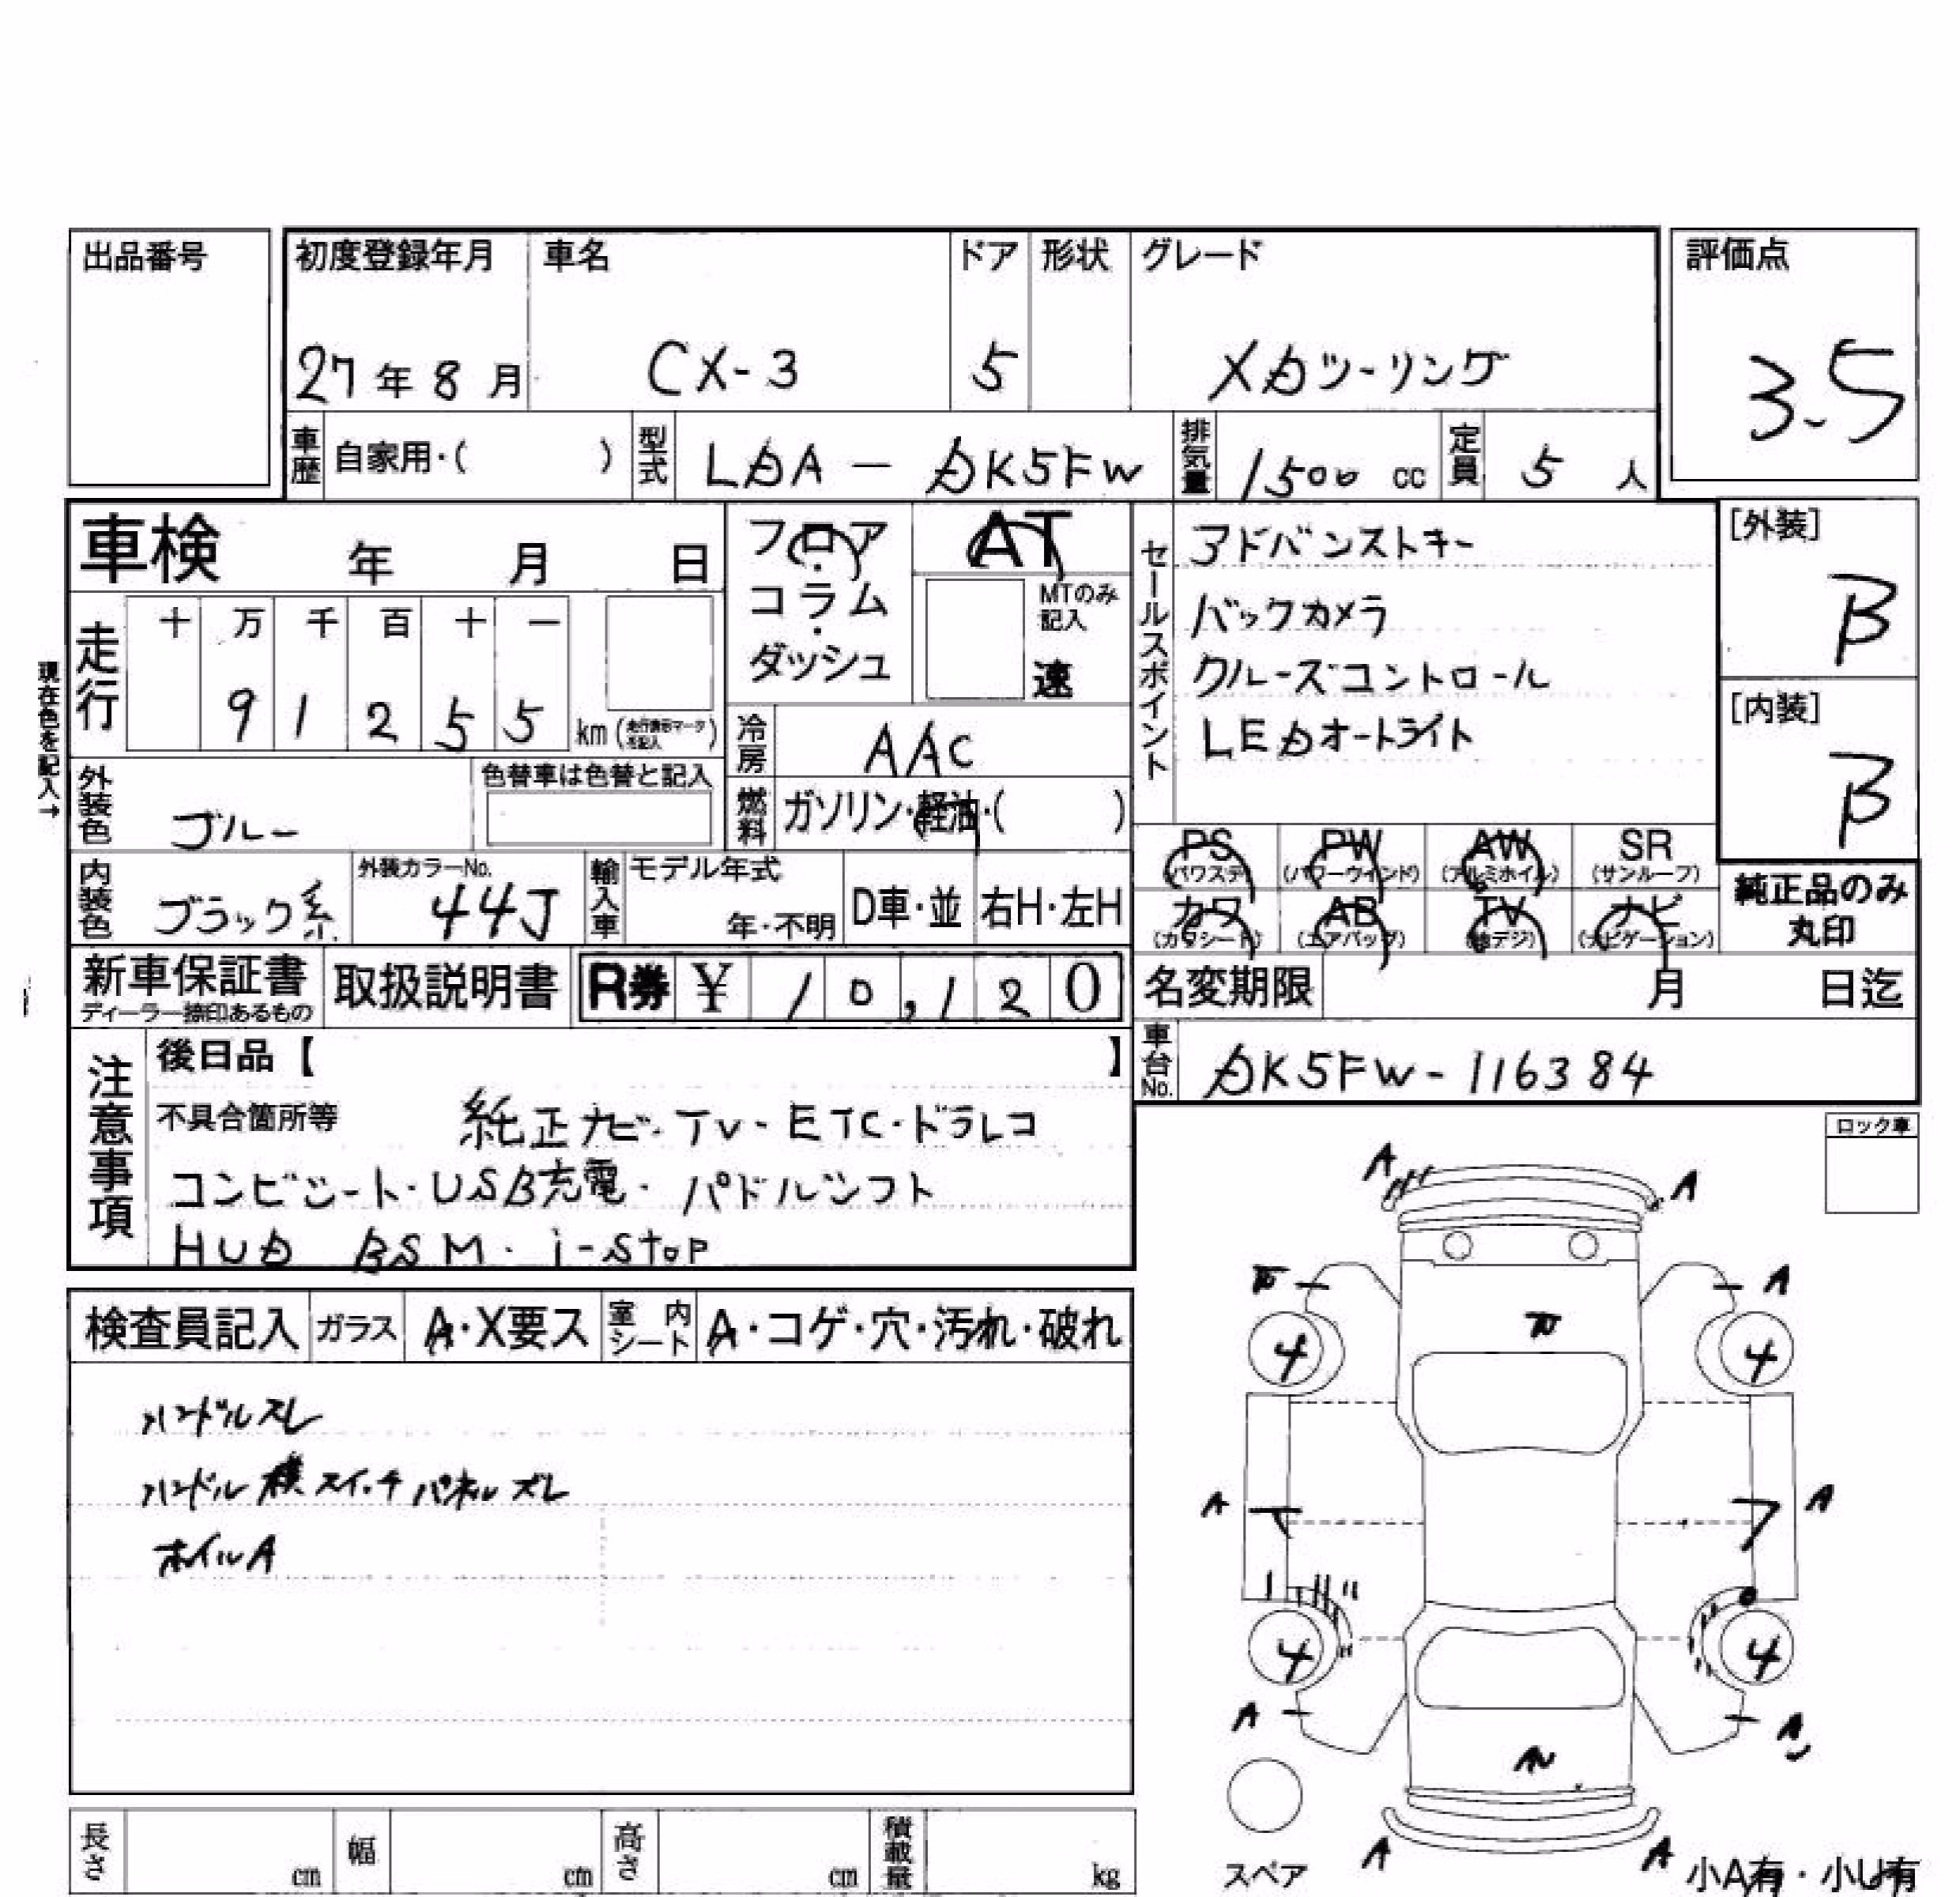 出品番号
初度登録年月 車名 ドア 形状 グレード 評価点
27年8月 CX-3 5 XDツーリング 3.5
車歴 自家用・( ) 型式 LDA - DK5FW 排気量 1500 cc 定員 5 人
車検 年 月 日
フロア・コラム・ダッシュ
AT
MTのみ記入
速
セールスポイント
アドバンストキー
バックカメラ
クルーズコントロール
LEDオートライト
[外装]
B
[内装]
B
現在色を記入→
走行 十 万 千 百 十 一
9 1 2 5 5 km
冷房 AAC
外装色 ブルー 色替車は色替と記入
燃料 ガソリン・軽油・( )
内装色 ブラック系 外装カラーNo. 44J
輸入車 モデル年式 年・不明 D車・並 右H・左H
PS (パワステ) PW (パワーウインド) AW (アルミホイル) SR (サンルーフ)
カワ (カワシート) AB (エアバッグ) TV (地デジ) ナビ (ナビゲーション)
純正品のみ丸印
新車保証書 ディーラー捺印あるもの 取扱説明書 R券 ¥ 10,120
名変期限 月 日迄
車台No. DK5FW-116384
注意事項
後日品【 】
不具合箇所等 純正ナビ・TV・ETC・ドラレコ
コンビシート・USB充電・パドルシフト
HUD BSM・i-stop
ロック車
検査員記入 ガラス A・X要ス 室内シート A・コゲ・穴・汚れ・破れ
ハンドルスレ
ハンドル横スイッチパネルズレ
ホイルA
A A
A
4 4
A A
4 4
A A
A A
スペア
小A有・小U有
長さ cm 幅 cm 高さ cm 積載量 kg